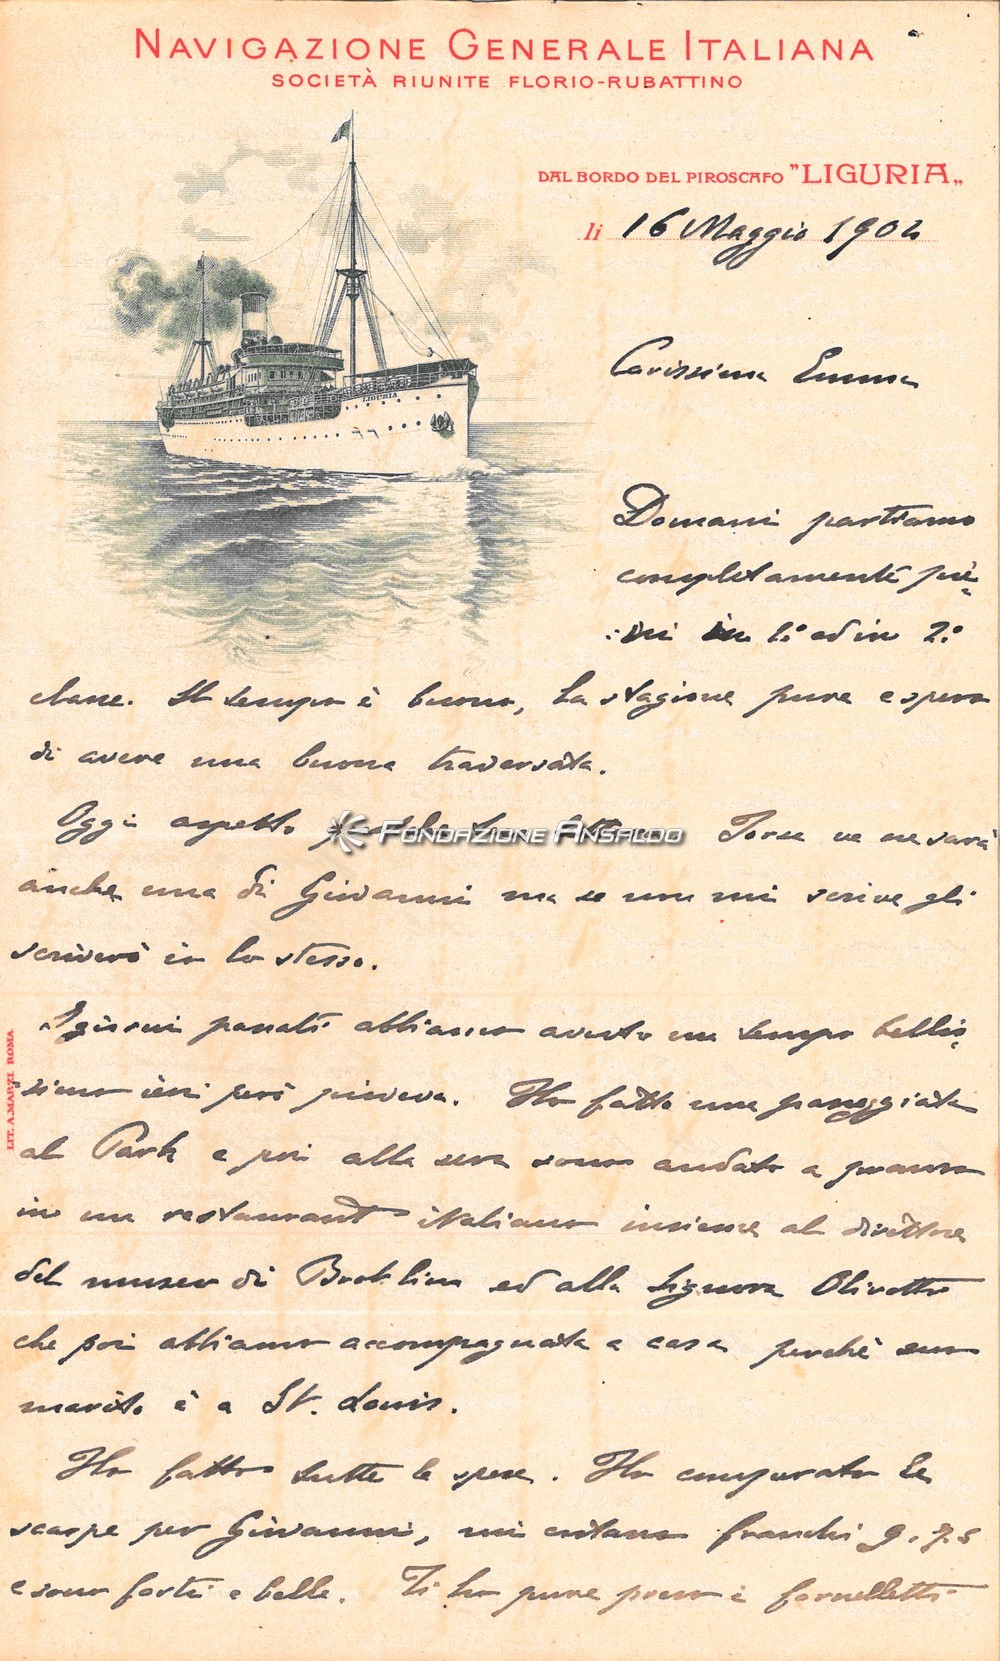 NAVIGAZIONE GENERALE ITALIANA
SOCIETÀ RIUNITE FLORIO-RUBATTINO
DAL BORDO DEL PIROSCAFO "LIGURIA"
li 16 Maggio 1904
LIGURIA
Carissima Emma
Domani partiamo
completamente pie-
ni in 1.° ed in 2.°
classe. Il tempo è buono, la stagione pure e spero
di avere una buona traversata.
Oggi aspetto Forse ve ne sarà
FONDAZIONE ANSALDO
anche una di Giovanni ma se non mi scrive gli
scriverò io lo stesso.
I giorni passati abbiamo avuto un tempo bellis-
simo ieri però pioveva. Ho fatto una passeggiata
al Park e poi alla sera sono andato a pranzo
in un restaurant italiano insieme al direttore
del museo di Brooklin ed alla Signora Olivotto
che poi abbiamo accompagnata a casa perchè suo
marito è a St. Louis.
Ho fatto tutte le spese. Ho comperato le
scarpe per Giovanni, mi costano franchi 9.75
e sono forti e belle. Ti ho pure preso i fornelletti
LIT. A. MARZI ROMA